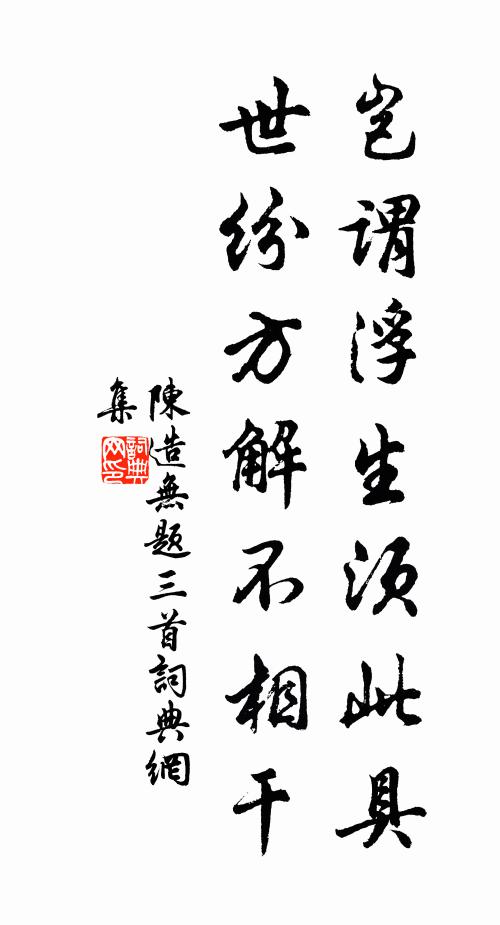 豈謂浮生須此具
世紛方解不相干
陳造無題三首詞典網
集
詞典
网印